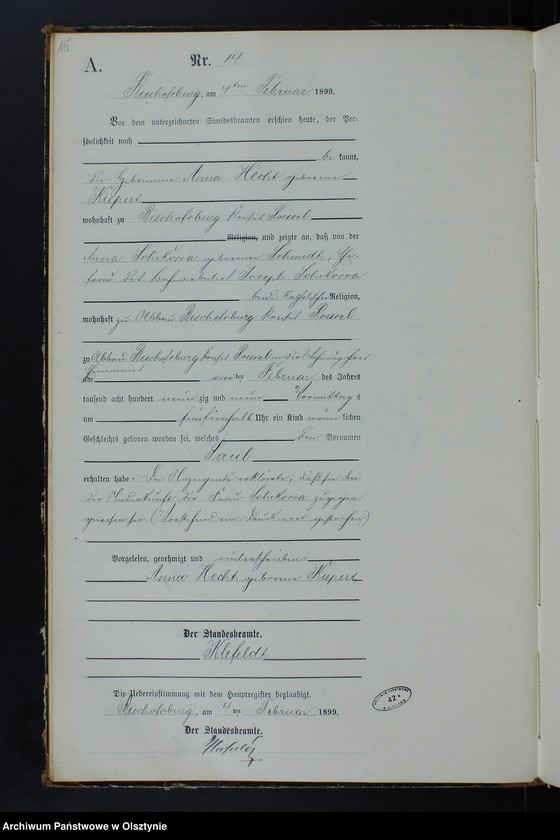 15
A.
Nr. 14
Bischofsburg, am 4ten Februar 1899.
Vor dem unterzeichneten Standesbeamten erschien heute, der Per-
sönlichkeit nach
be kannt,
die Hebamme Anna Hecht geborene
Kiepert
wohnhaft zu Bischofsburg Kreises Roessel
Religion, und zeigte an, daß von der
Anna Sohikorra geborenen Schmidt, Ehe-
frau des Joseph Sohikorra
beide katholischer Religion,
wohnhaft zu Abbau Bischofsburg Kreises Roessel
zu Abbau Bischofsburg Kreises Roessel in der Wohnung ihres
Ehemannes
am vier ten Februar des Jahres
tausend acht hundert neun zig und neun Vormittags
um fünfeinhalb Uhr ein Kind männ lichen
Geschlechts geboren worden sei, welches den Vornamen
Paul
erhalten habe. Die Anzeigende erklärte, daß sie bei
der Niederkunft der Frau Sohikorra zugegen
gewesen sei (Vorstehend ein Druckwort gestrichen)
Vorgelesen, genehmigt und unterschrieben
Anna Hecht geborene Kiepert
Der Standesbeamte.
Klefeldt
Die Uebereinstimmung mit dem Hauptregister beglaubigt.
Bischofsburg, am 4 ten Februar 1899.
Der Standesbeamte.
42
Archiwum Państwowe w Olsztynie